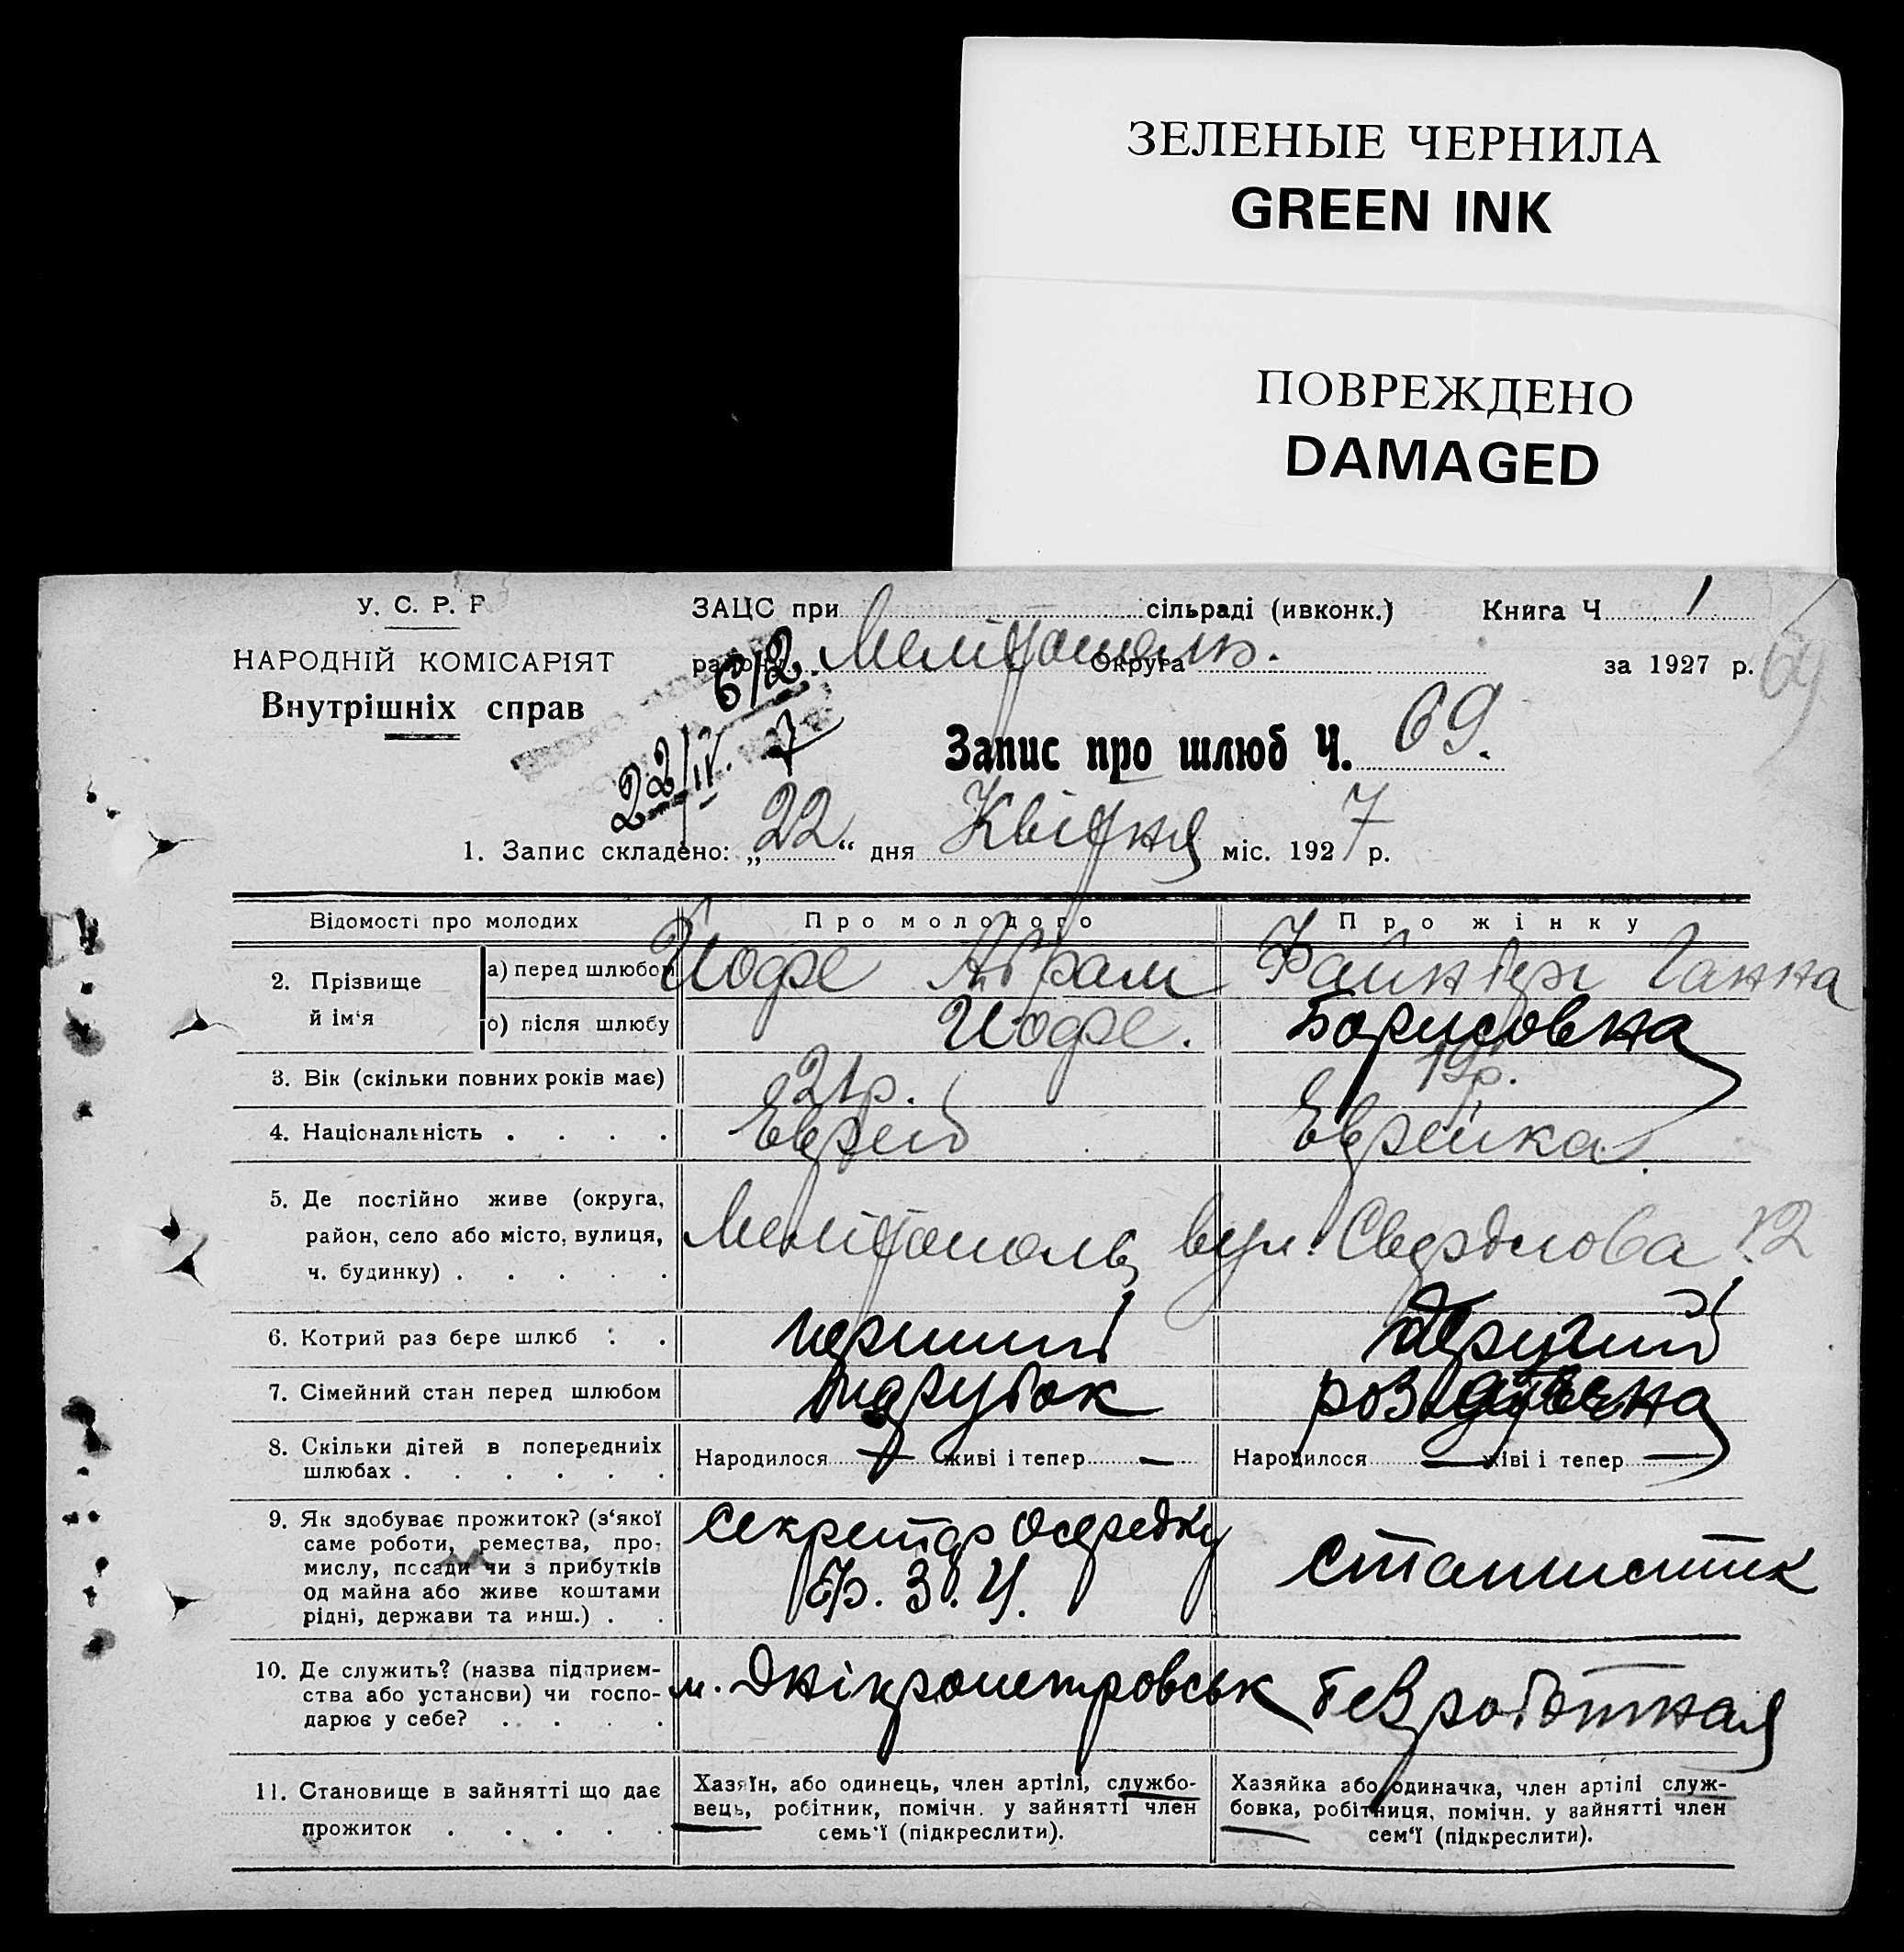 ЗЕЛЕНЫЕ ЧЕРНИЛА
GREEN INK
ПОВРЕЖДЕНО
DAMAGED
У. С. Р. Р
НАРОДНІЙ КОМІСАРІЯТ
Внутрішніх справ
ЗАЦС при сільраді (ивконк.) Книга Ч 1
району Мелітополь. Округа за 1927 р.
69
612
22/IV. 7
Запис про шлюб Ч. 69.
1. Запис складено: „22“ дня Квітня міс. 1927 р.
Відомості про молодих Про молодого Про жінку
2. Прізвище й ім‘я
а) перед шлюбом Йофе Абрам Файнберг Ганна
б) після шлюбу Йофе. Борисовна
3. Вік (скільки повних років має) 21 р. 19 р.
4. Національність . . . . Еврей Еврейка.
5. Де постійно живе (округа,
район, село або місто, вулиця,
ч. будинку) . . . . .
Мелітополь, вул. Свердлова 12
6. Котрий раз бере шлюб : . перший другий
7. Сімейний стан перед шлюбом парубок розведена
8. Скільки дітей в попередниіх
шлюбах . . . . . .
Народилося — живі і тепер — Народилося — живі і тепер —
9. Як здобуває прожиток? (з‘якої
саме роботи, ремества, про-
мислу, посади чи з прибутків
од майна або живе коштами
рідні, держави та инш.) . .
Секретар Осередку
статистик
10. Де служить? (назва підприєм-
ства або установи) чи госпо-
дарює у себе? . . . .
м. Дніпропетровськ безроботная
11. Становище в зайнятті що дає
прожиток . . . . .
Хазяїн, або одинець, член артілі, службо-
вець, робітник, помічн. у зайнятті член
семь‘ї (підкреслити).
Хазяйка або одиначка, член артілі служ-
бовка, робітниця, помічн. у зайнятті член
сем‘ї (підкреслити).